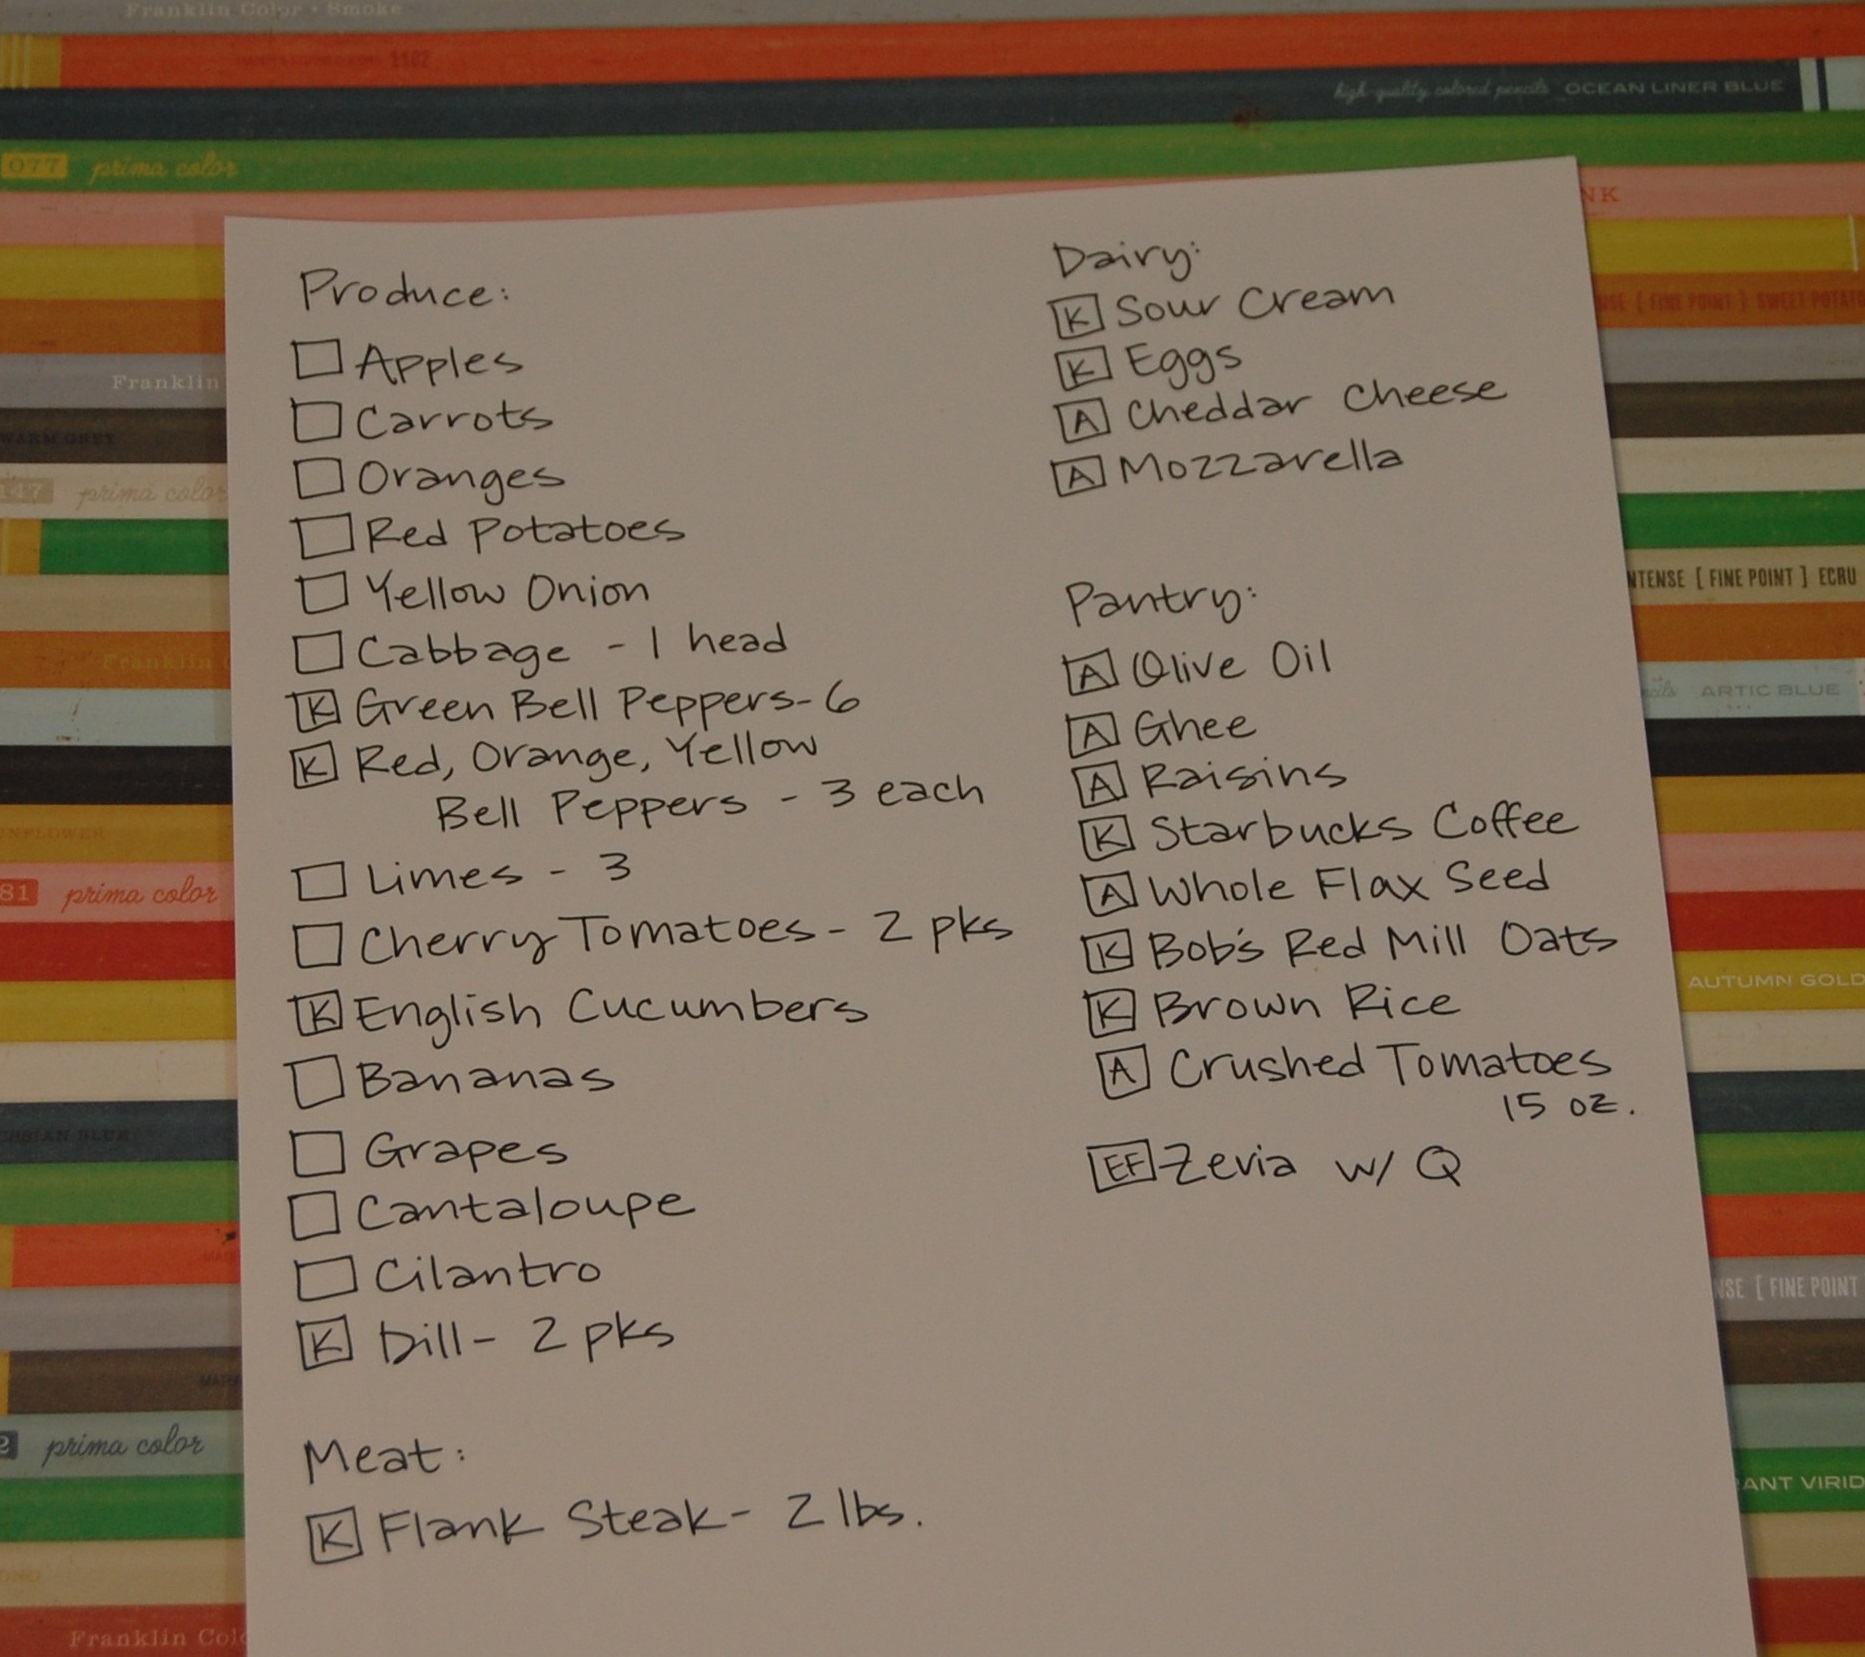 Franklin Color • Smoke
1102
high-quality colored pencils OCEAN LINER BLUE
077 prima color
NK
[ FINE POINT ] SWEET POTATO
Franklin
WARM GREY
147 prima color
NTENSE [ FINE POINT ] ECRU
Franklin C
ARTIC BLUE
NFLOWER
81 prima color
AUTUMN GOLD
BLUE
NSE [ FINE POINT
2 prima color
ANT VIRID
Franklin Colo
Produce:
Apples
Carrots
Oranges
Red Potatoes
Yellow Onion
Cabbage - 1 head
K Green Bell Peppers- 6
K Red, Orange, Yellow
Bell Peppers - 3 each
Limes - 3
Cherry Tomatoes - 2 pks
K English Cucumbers
Bananas
Grapes
Cantaloupe
Cilantro
K Dill- 2 pks
Meat:
K Flank Steak- 2 lbs.
Dairy:
K Sour Cream
K Eggs
A Cheddar Cheese
A Mozzarella
Pantry:
A Olive Oil
A Ghee
A Raisins
K Starbucks Coffee
A Whole Flax Seed
K Bob's Red Mill Oats
K Brown Rice
A Crushed Tomatoes
15 oz.
EF Zevia w/ Q